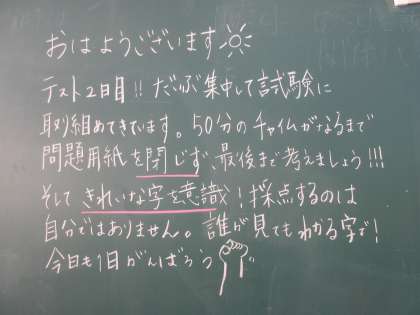 おはようございます
テスト2日目!! だいぶ集中して試験に
取り組めてきています。50分のチャイムがなるまで
問題用紙を閉じず、最後まで考えましょう!!!
そして きれいな字を意識! 採点するのは
自分ではありません。誰が見てもわかる字で!
今日も1日がんばろう